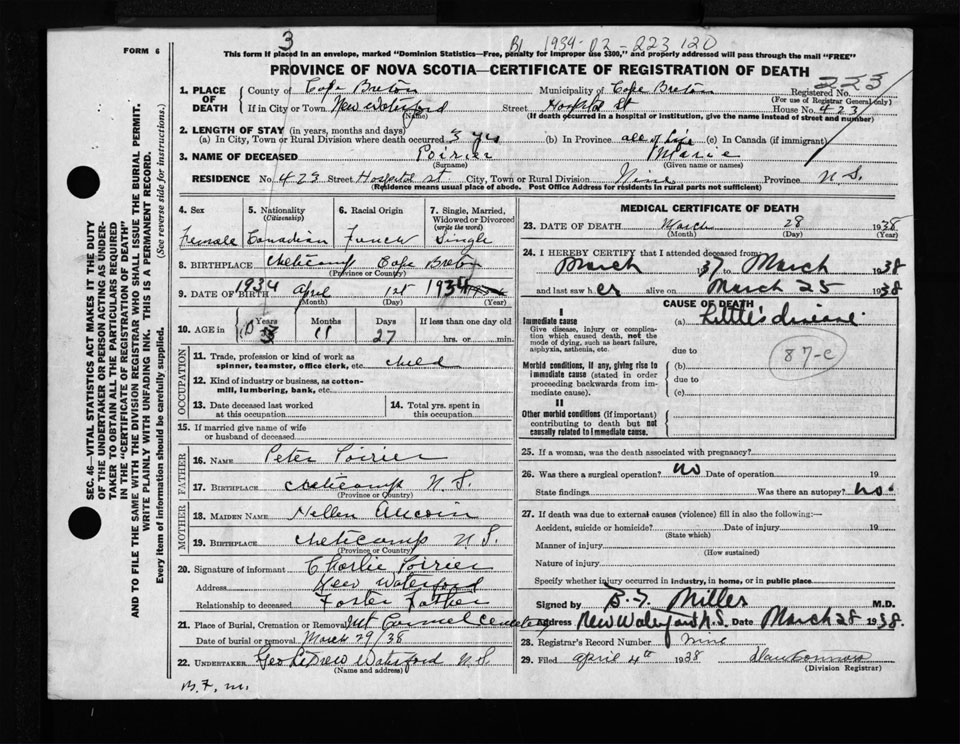 3
B1 1934-02-223120
FORM 6
This form if placed in an envelope, marked "Dominion Statistics—Free, penalty for improper use $300," and properly addressed will pass through the mail "FREE"
PROVINCE OF NOVA SCOTIA—CERTIFICATE OF REGISTRATION OF DEATH
223
1. PLACE OF DEATH County of Cape Breton Municipality of Cape Breton Registered No.
(For use of Registrar General only)
If in City or Town New Waterford Street Hospital St House No. 423
(Name) (If death occurred in a hospital or institution, give the name instead of street and number)
2. LENGTH OF STAY (in years, months and days)
(a) In City, Town or Rural Division where death occurred 3 yrs (b) In Province all of life (c) In Canada (if immigrant)
3. NAME OF DECEASED Poirier Marie
(Surname) (Given name or names)
RESIDENCE No. 429 Street Hospital St. City, Town or Rural Division Nine Province N.S.
(Residence means usual place of abode. Post Office Address for residents in rural parts not sufficient)
4. Sex 5. Nationality (Citizenship) 6. Racial Origin 7. Single, Married, Widowed or Divorced (write the word)
Female Canadian French Single
8. BIRTHPLACE Cheticamp Cape Breton
(Province or Country)
9. DATE OF BIRTH 1934 April 1st 1934
(Month) (Day) (Year)
10. AGE in Years Months Days If less than one day old
3 11 27 hrs. or min.
OCCUPATION
11. Trade, profession or kind of work as spinner, teamster, office clerk, etc. child
12. Kind of industry or business, as cotton-mill, lumbering, bank, etc.
13. Date deceased last worked at this occupation
14. Total yrs. spent in this occupation
15. If married give name of wife or husband of deceased
FATHER
16. NAME Peter Poirier
17. BIRTHPLACE Cheticamp N.S.
(Province or Country)
MOTHER
18. MAIDEN NAME Nellen Aucoin
19. BIRTHPLACE Cheticamp N.S.
(Province or Country)
20. Signature of informant Charlie Poirier
Address New Waterford
Relationship to deceased Foster Father
21. Place of Burial, Cremation or Removal Mt Carmel Cemetery
Date of burial or removal March 29/38
22. UNDERTAKER Geo Waterford N.S.
(Name and address)
B.F.M.
MEDICAL CERTIFICATE OF DEATH
23. DATE OF DEATH March 28 1938
(Month) (Day) (Year)
24. I HEREBY CERTIFY that I attended deceased from
March 1937 to March 1938
and last saw her alive on March 25 1938
CAUSE OF DEATH
I
Immediate cause (a) Little's disease
Give disease, injury or complication which caused death, not the mode of dying, such as heart failure, asphyxia, asthenia, etc.
due to
87-c
Morbid conditions, if any, giving rise to immediate cause (stated in order proceeding backwards from immediate cause). (b)
due to
(c)
II
Other morbid conditions (if important) contributing to death but not causally related to immediate cause.
25. If a woman, was the death associated with pregnancy?
26. Was there a surgical operation? no Date of operation 19
State findings Was there an autopsy? no.
27. If death was due to external causes (violence) fill in also the following:—
Accident, suicide or homicide? Date of injury 19
(State which)
Manner of injury
(How sustained)
Nature of injury
Specify whether injury occurred in industry, in home, or in public place
Signed by B.S. Miller M.D.
Address New Waterford N.S. Date March 28 1938
28. Registrar's Record Number nine
29. Filed April 4th 1938
(Division Registrar)
SEC. 46—VITAL STATISTICS ACT MAKES IT THE DUTY
OF THE UNDERTAKER OR PERSON ACTING AS UNDER-
TAKER TO OBTAIN ALL THE PARTICULARS REQUIRED
IN THE "CERTIFICATE OF REGISTRATION OF DEATH"
AND TO FILE THE SAME WITH THE DIVISION REGISTRAR WHO SHALL ISSUE THE BURIAL PERMIT.
WRITE PLAINLY WITH UNFADING INK. THIS IS A PERMANENT RECORD.
Every item of information should be carefully supplied. (See reverse side for instructions.)